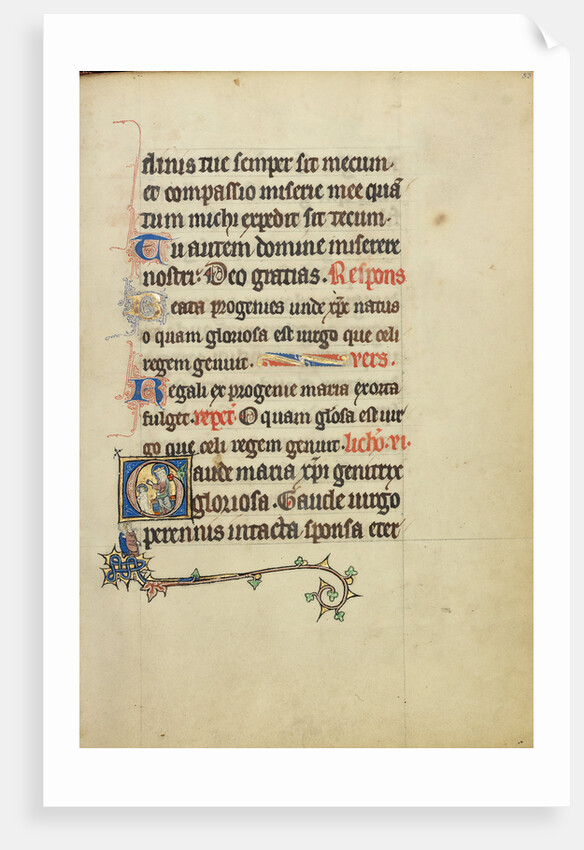 33
ninis tue semper sit mecum.
et compassio miserie mee quā
tum michi expedit sit tecum.
Tu autem domine miserere
nostri. Deo gratias. Respons
Beata progenies unde xp̄c natus
o quam gloriosa est uirgo que celi
regem genuit. vers.
Regali ex progenie maria exorta
fulget. repet̄. O quam gl̄osa est uir
go que celi regem genuit. licħo. vi.
Gaude maria xp̄i genitrix
gloriosa. Gaude uirgo
perennis intacta sponsa eter